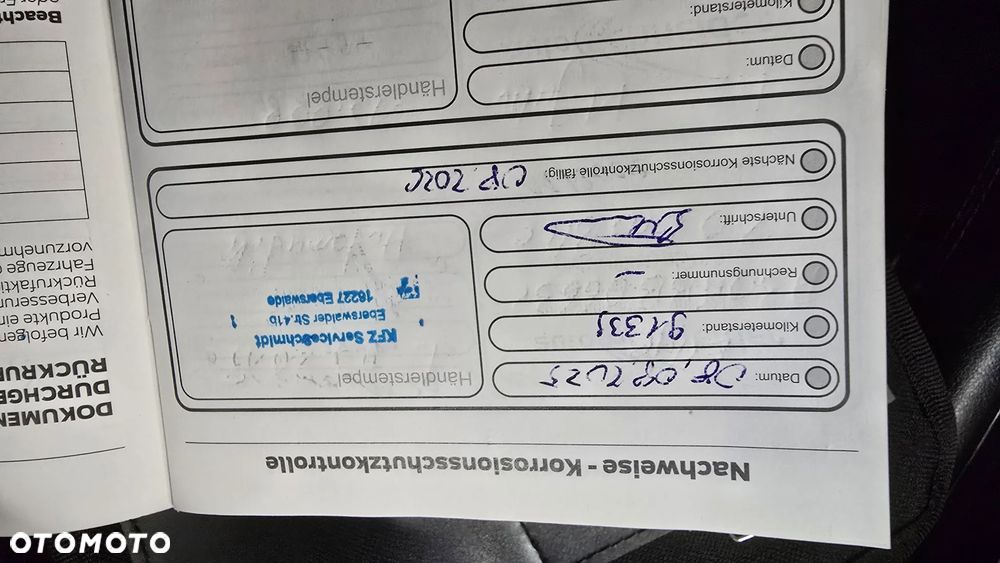 Nachweise - Korrosionsschutzkontrolle
Datum: 08.08.2025
Kilometerstand:
Rechnungsnummer: –
Unterschrift:
Nächste Korrosionsschutzkontrolle fällig: 08.2026
Händlerstempel
KFZ Service Schmidt
Eberswalder Str.41b
16227 Eberswalde
Datum:
Kilometerstand:
Händlerstempel
DOKUMEN
DURCHGE
RÜCKRU
Wir befolgen
Produkte ein
Verbesserun
Rückrufaktio
Fahrzeuge
vorzunehm
Beacht
OTOMOTO